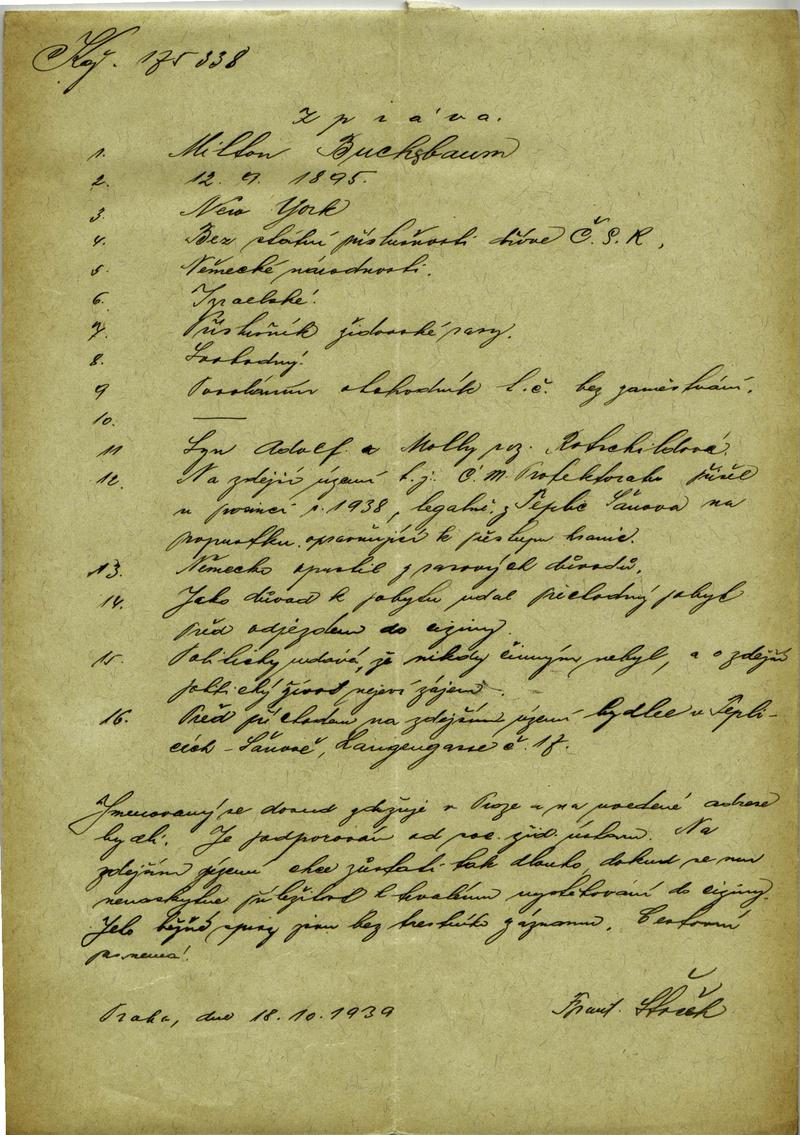 175 338
Zpráva.
1. Milton Buchsbaum
2. 12. 9. 1895.
3. New York
4. Bez státní příslušnosti dříve Č.S.R.
5. Německé národnosti.
6. Izraelské.
7. Příslušník židovské rasy.
8. Svobodný.
9 Povoláním obchodník t.č. bez zaměstnání.
10. ——
11 Syn Adolf a Molly roz. Rotschildová.
12. Na zdejší území t.j. Č. M. Protektorátu přišel
v prosinci r. 1938, legálně z Teplic Šanova na
propustku opravňující k přestupu hranic.
13. Německo opustil z rasových důvodů.
14. Jako důvod k pobytu udal přechodný pobyt
před odjezdem do ciziny.
15. Politicky udává, že nikdy činným nebyl, a o zdejší
politický život nejeví zájem.
16. Před příchodem na zdejší území bydlel v Tepli-
cích - Šanově, Langengasse č. 17.
Jmenovaný se dosud zdržuje v Praze a na uvedené adrese
bydlí. Je podporován od soc. žid. ústavu. Na
zdejším území chce zůstati tak dlouho, dokud se mu
nenaskytne příležitost k trvalému vystěhování do ciziny.
jsou bez trestního záznamu. Cestovní
pas nemá.
Praha, dne 18. 10. 1939
Frant.